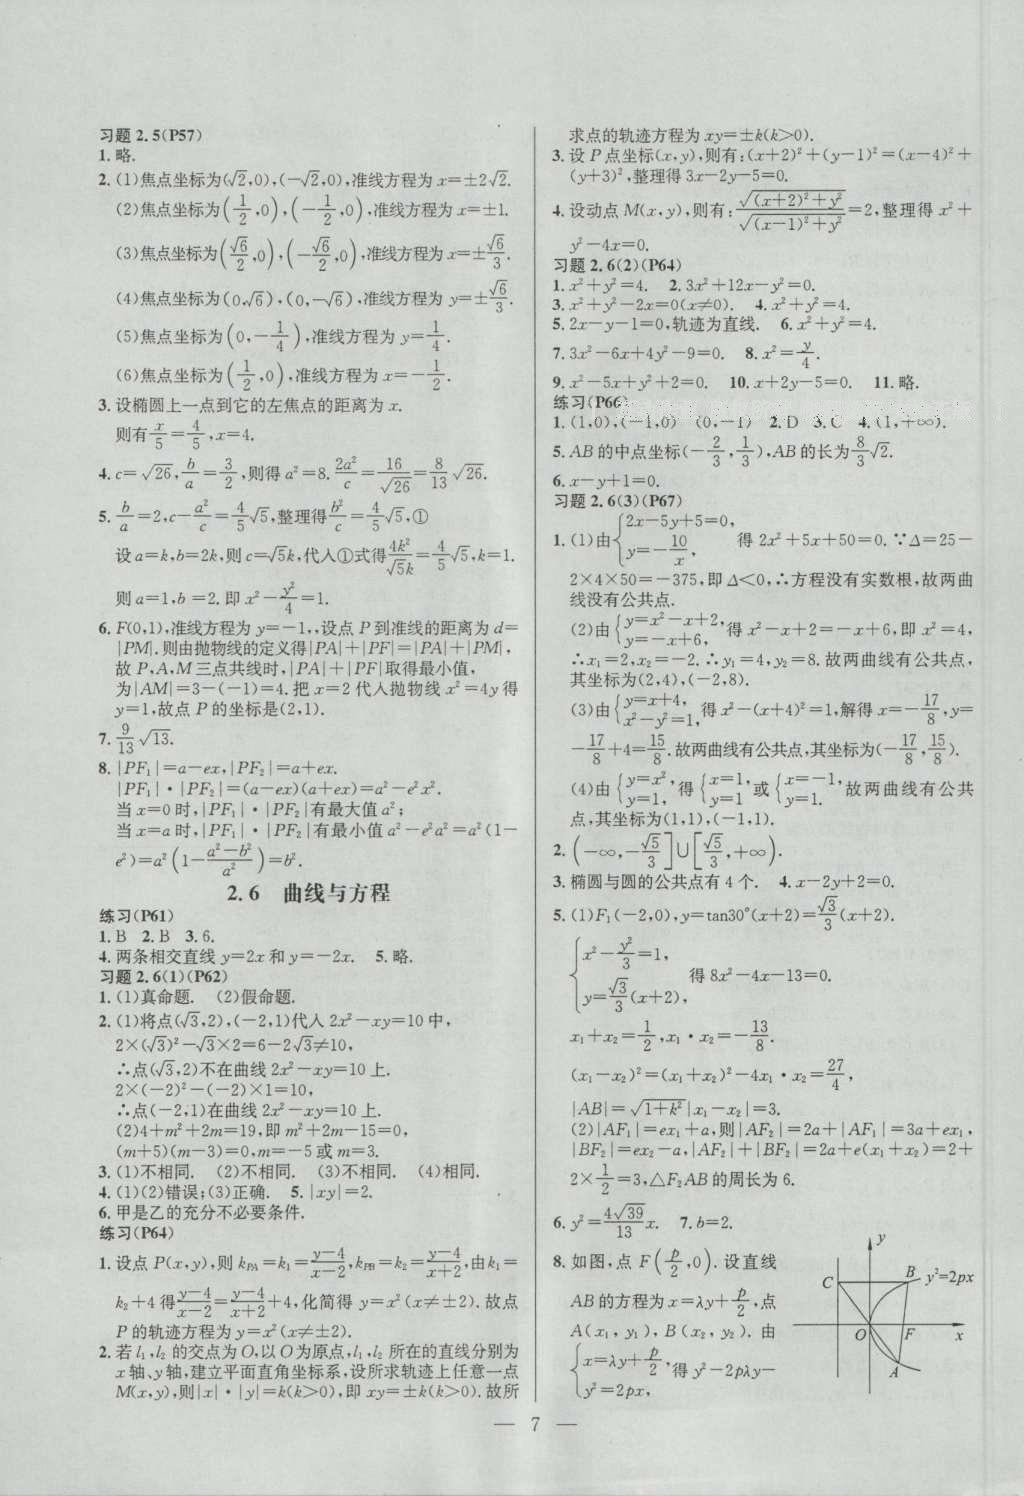 习题 2.5(P57)
1. 略.
2. (1)焦点坐标为(√2,0),(-√2,0),准线方程为 x=±2√2.
(2)焦点坐标为(1/2,0),(-1/2,0),准线方程为 x=±1.
(3)焦点坐标为(√6/2,0),(-√6/2,0),准线方程为x=±√6/3.
(4)焦点坐标为(0,√6),(0,-√6),准线方程为 y=±√6/3.
(5)焦点坐标为(0,-1/4),准线方程为 y=1/4.
(6)焦点坐标为(1/2,0),准线方程为 x=-1/2.
3. 设椭圆上一点到它的左焦点的距离为 x.
则有x/5=4/5,x=4.
4. c=√26,b/a=3/2,则得 a²=8.2a²/c=16/√26=8/13√26.
5. b/a=2,c-a²/c=4/5√5,整理得b²/c=4/5√5,①
设 a=k,b=2k,则 c=√5k,代入①式得4k²/√5k=4/5√5,k=1.
则 a=1,b=2.即 x²-y²/4=1.
6. F(0,1),准线方程为 y=-1,,设点 P 到准线的距离为 d=
|PM|.则由抛物线的定义得|PA|+|PF|=|PA|+|PM|,
故 P,A,M 三点共线时,|PA|+|PF|取得最小值,
为|AM|=3-(-1)=4.把 x=2 代入抛物线 x²=4y 得
y=1,故点 P 的坐标是(2,1).
7. 9/13√13.
8. |PF₁|=a-ex,|PF₂|=a+ex.
|PF₁|·|PF₂|=(a-ex)(a+ex)=a²-e²x².
当 x=0 时,|PF₁|·|PF₂|有最大值 a²;
当 x=a 时,|PF₁|·|PF₂|有最小值 a²-e²a²=a²(1-
e²)=a²(1-a²-b²/a²)=b².
2.6 曲线与方程
练习(P61)
1. B 2. B 3. 6.
4. 两条相交直线 y=2x 和 y=-2x. 5. 略.
习题 2.6(1)(P62)
1. (1)真命题. (2)假命题.
2. (1)将点(√3,2),(-2,1)代入 2x²-xy=10 中,
2×(√3)²-√3×2=6-2√3≠10,
∴点(√3,2)不在曲线 2x²-xy=10 上.
2×(-2)²-(-2)×1=10,
∴点(-2,1)在曲线 2x²-xy=10 上.
(2)4+m²+2m=19,即 m²+2m-15=0,
(m+5)(m-3)=0,m=-5 或 m=3.
3. (1)不相同. (2)不相同. (3)不相同. (4)相同.
4. (1)(2)错误;(3)正确. 5. |xy|=2.
6. 甲是乙的充分不必要条件.
练习(P64)
1. 设点 P(x,y),则 kPA=k₁=y-4/x-2,kPB=k₂=y-4/x+2,由k₁=
k₂+4 得y-4/x-2=y-4/x+2+4,化简得 y=x²(x≠±2).故点
P 的轨迹方程为 y=x²(x≠±2).
2. 若 l₁,l₂ 的交点为 O,以 O 为原点,l₁,l₂ 所在的直线分别为
x 轴、y 轴,建立平面直角坐标系,设所求轨迹上任意一点
M(x,y),则|x|·|y|=k(k>0),即 xy=±k(k>0).故所
求点的轨迹方程为 xy=±k(k>0).
3. 设 P 点坐标(x,y),则有:(x+2)²+(y-1)²=(x-4)²+
(y+3)²,整理得 3x-2y-5=0.
4. 设动点 M(x,y),则有:√(x+2)²+y²/√(x-1)²+y²=2,整理得 x²+
y²-4x=0.
习题 2.6(2)(P64)
1. x²+y²=4. 2. 3x²+12x-y²=0.
3. x²+y²-2x=0(x≠0). 4. x²+y²=4.
5. 2x-y-1=0,轨迹为直线. 6. x²+y²=4.
7. 3x²-6x+4y²-9=0. 8. x²=y/4.
9. x²-5x+y²+2=0. 10. x+2y-5=0. 11. 略.
练习(P66)
1. (1,0),(-1,0) (0,-1) 2. D 3. C 4. (1,+∞).
5. AB 的中点坐标(-2/3,1/3),AB 的长为8/3√2.
6. x-y+1=0.
习题 2.6(3)(P67)
1. (1)由{2x-5y+5=0, y=-10/x, 得 2x²+5x+50=0.∵Δ=25-
2×4×50=-375,即 Δ<0,∴方程没有实数根,故两曲
线没有公共点.
(2)由{y=x²-x+2, y=-x+6, 得 x²-x+2=-x+6,即 x²=4,
∴x₁=2,x₂=-2.∴y₁=4,y₂=8.故两曲线有公共点,
其坐标为(2,4),(-2,8).
(3)由{y=x+4, x²-y²=1, 得 x²-(x+4)²=1,解得 x=-17/8,y=
-17/8+4=15/8.故两曲线有公共点,其坐标为(-17/8,15/8).
(4)由{y=x², y=1, 得{x=1, y=1, 或{x=-1, y=1. 故两曲线有公共
点,其坐标为(1,1),(-1,1).
2. (-∞,-√5/3]∪[√5/3,+∞).
3. 椭圆与圆的公共点有 4 个. 4. x-2y+2=0.
5. (1)F₁(-2,0),y=tan30°(x+2)=√3/3(x+2).
{x²-y²/3=1, y=√3/3(x+2), 得 8x²-4x-13=0.
x₁+x₂=1/2,x₁·x₂=-13/8.
(x₁-x₂)²=(x₁+x₂)²-4x₁·x₂=27/4,
|AB|=√1+k²|x₁-x₂|=3.
(2)|AF₁|=ex₁+a,则|AF₂|=2a+|AF₁|=3a+ex₁,
|BF₂|=ex₂-a,|AF₂|+|BF₂|=2a+e(x₁+x₂)=2+
2×1/2=3,△F₂AB 的周长为 6.
6. y²=4√39/13x. 7. b=2.
8. 如图,点 F(p/2,0).设直线
AB 的方程为 x=λy+p/2,点
A(x₁,y₁),B(x₂,y₂).由
{x=λy+p/2, y²=2px, 得 y²-2pλy-
y
C
B
y²=2px
O
F
x
A
— 7 —